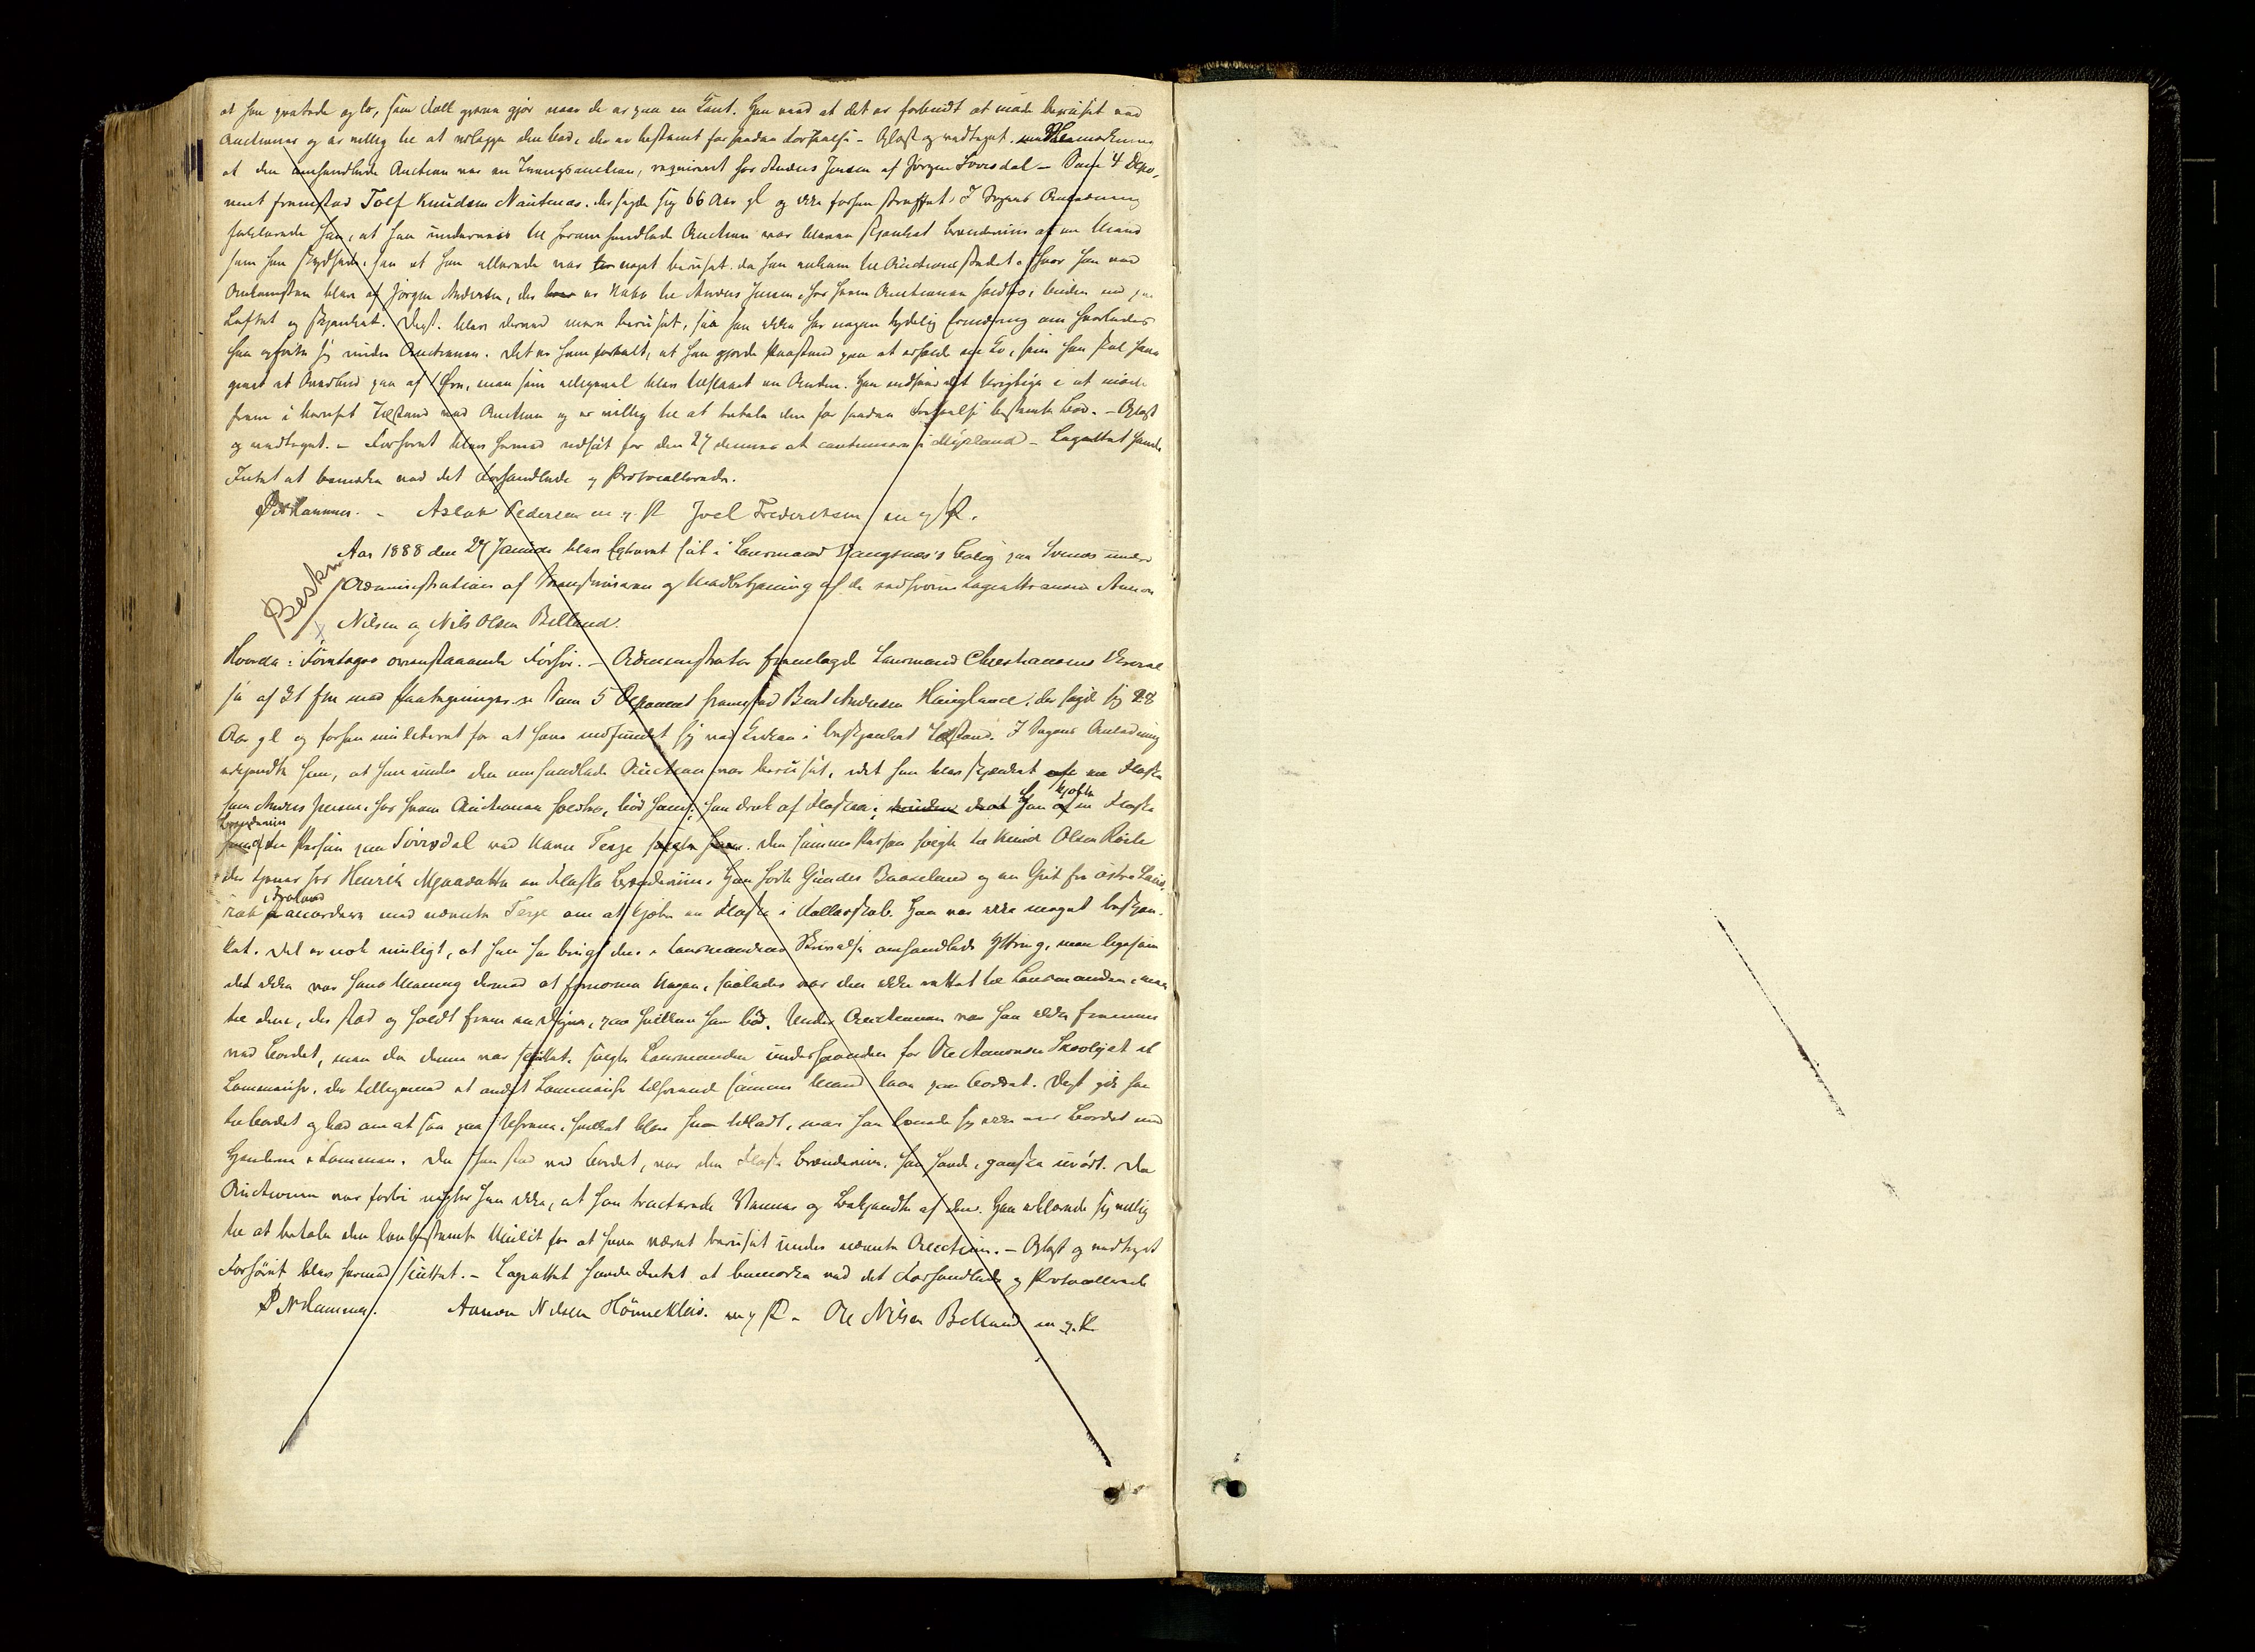 at han pratede og lo, som Folk gjerne gjør naar de er paa en Tant. Han veed at det er forbudt at møde beruset ved
Auctioner og er villig til at erlægge den Bod, der er bestemt for saadan Forseelse – Oplæst og vedtaget. Bemærkning
at den omhandlede Auction var en Tvangsauction, requireret hos Anders Jensen af Jørgen – Som 4 Depo-
nent fremstod Tolf Knudsen Nautenæs, der sagde sig 66 Aar gl og ikke forhen straffet. I Sagens Anledning
forklarede han, at han underveis til heromhandlede Auction var bleven skjænket Brændeviin af en Mand
som han skydsede, saa at han allerede var noget beruset da han ankom til Auctionsstedet, hvor han ved
Ankomsten blev af Jørgen Andersen, der er Nabo til Anders Jensen, hos hvem Auctionen holdtes, buden ind paa
Loftet og skjænket. Depst. blev derved mere beruset, saa han ikke har nogen tydelig Erindring om hvorledes
han opførte sig under Auctionen. Det er ham fortalt, at han gjorde Paastand paa at erholde en Ko, som han skal have
gjort et Overbud paa af 1 Øre, men som alligevel blev tilslaaet en Anden. Han indsaa det Urigtige i at møde
frem i beruset Tilstand ved Auction og er villig til at betale den for saadan Forseelse bestemte Bod. – Oplæst
og vedtaget. – Forhøret blev hermed udsat for den 27 dennes at continuere i Mysland – Lagrettet havde
Intet at bemærke ved det Forhandlede og Protocollerede.
P N Hammer. – Aslak Pedersen m. p. P. Joel Frederiksen m p P.
Aar 1888 den 27 Januar blev Extraret sat i Lensmand Vangsnes's Bolig paa Svenes under
Beskr.
Administration af Sorenskriveren og Medbetjening af de edsvorne Lagrettesmænd Aanon
Nilsen og Nils Olsen Belland.
Hvorda: Foretages ovenstaaende Forhør. – Administrator fremlagde Lensmand Christiansens Skrivel
se af 21 ds med Paategninger. Som 5 Deponent fremstod Bent Andersen Haugland, der sagde sig 28
Aar gl og forhen mulcteret for at have indfundet sig ved Kirken i beskjænket Tilstand. I Sagens Anledning
erkjendte han, at han under den omhandlede Auction var beruset, idet han blev skjænket af en Flaske
som Anders Jensen, hos hvem Auctionen holdtes, bød ham; han drak af Flasken; Han kjøbte en Flaske
Brændeviin
af en Person paa Tovsdal ved Navn Terje. Den samme Person solgte til Knud Olsen Røile
der tjener hos Henrik Mjaavatn en Flaske Brændeviin. Han hørte Gunder Baaseland og en Gut fra østre Lauv-
rak i Froland accordere med nævnte Terje om at kjøbe en Flaske i Fællesskab. Han var ikke meget beskjæn-
ket. Det er nok muligt, at han har brugt den i Lensmandens Skrivelse omhandlede Yttring, men ligesom
det ikke var hans Mening dermed at fornærme Nogen, saaledes var den ikke rettet til Lensmanden, men
til den, der stod og holdt frem en Ting, paa hvilken han bød. Under Auctionen var han ikke fremme
ved Bordet, men da denne var sluttet, solgte Lensmanden underhaanden for Ole Aanonsen Skovljat et
Lommeuhr, der tilligemed et andet Lommeuhr tilhørende samme Mand laa paa Bordet. Depst gik hen
til Bordet og bad om at see paa Uhrene, hvilket blev ham tilladt, men han lænede sig ikke over Bordet med
Hænderne i Lommen. Da han stod ved Bordet, var den Flaske Brændeviin, han havde, ganske urørt. Da
Auctionen var forbi nægter han ikke, at han tracterede Venner og Bekjendte af den. Han erklærede sig villig
til at betale den lovbestemte Mulct for at have været beruset under nævnte Auction. – Oplæst og vedtaget
Forhøret blev hermed sluttet. – Lagrettet havde Intet at bemærke ved det Forhandlede og Protocollerede
P N Hammer. Aanon Nilsen Hønnekleiv. m p P. – Ole Nilsen Belland m p. P.